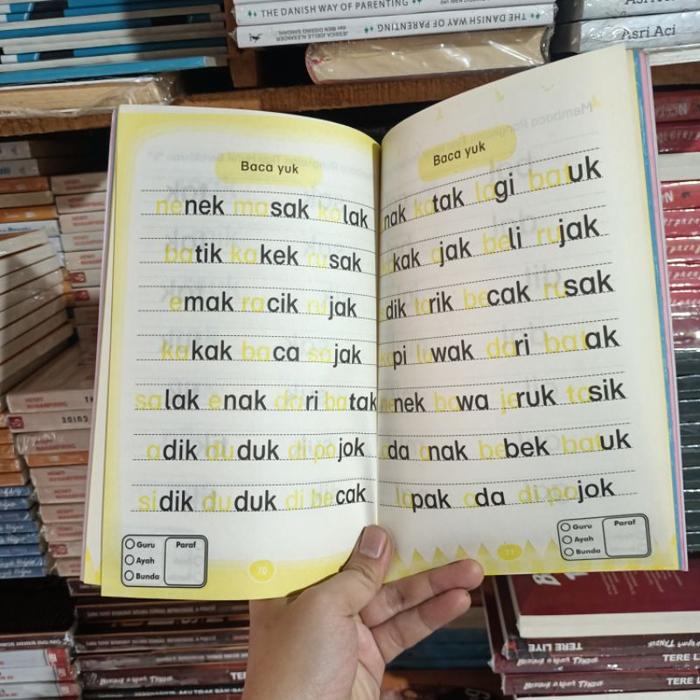 THE DANISH WAY OF PARENTING
THE DANISH WAY OF PARENTING
Asri Aci
Baca yuk
nenek masak kolak
batik kakek rusak
emak racik rujak
kakak baca sajak
salak enak dari batak
adik duduk di pojok
sidik duduk di becak
Guru
Ayah
Bunda
Paraf
10
Baca yuk
nak katak lagi batuk
kak ajak beli rujak
dik tarik becak rusak
pi luwak dari batak
nek bawa jeruk tasik
da anak bebek batuk
lapak ada di pojok
Guru
Ayah
Bunda
Paraf
11
TERE LIYE
TERE